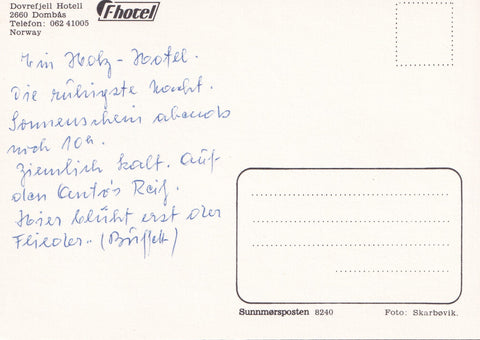 Dovrefjell Hotell
2660 Dombås
Telefon: 062 41005
Norway
F-hotel
Ein Holz-Hotel.
Die ruhigste Nacht.
Sonnenschein abends
noch 10h.
Ziemlich kalt. Auf
den Auto's Reif.
Hier blüht erst der
Flieder.. (Büffett)
Sunnmørsposten 8240
Foto: Skarbøvik.